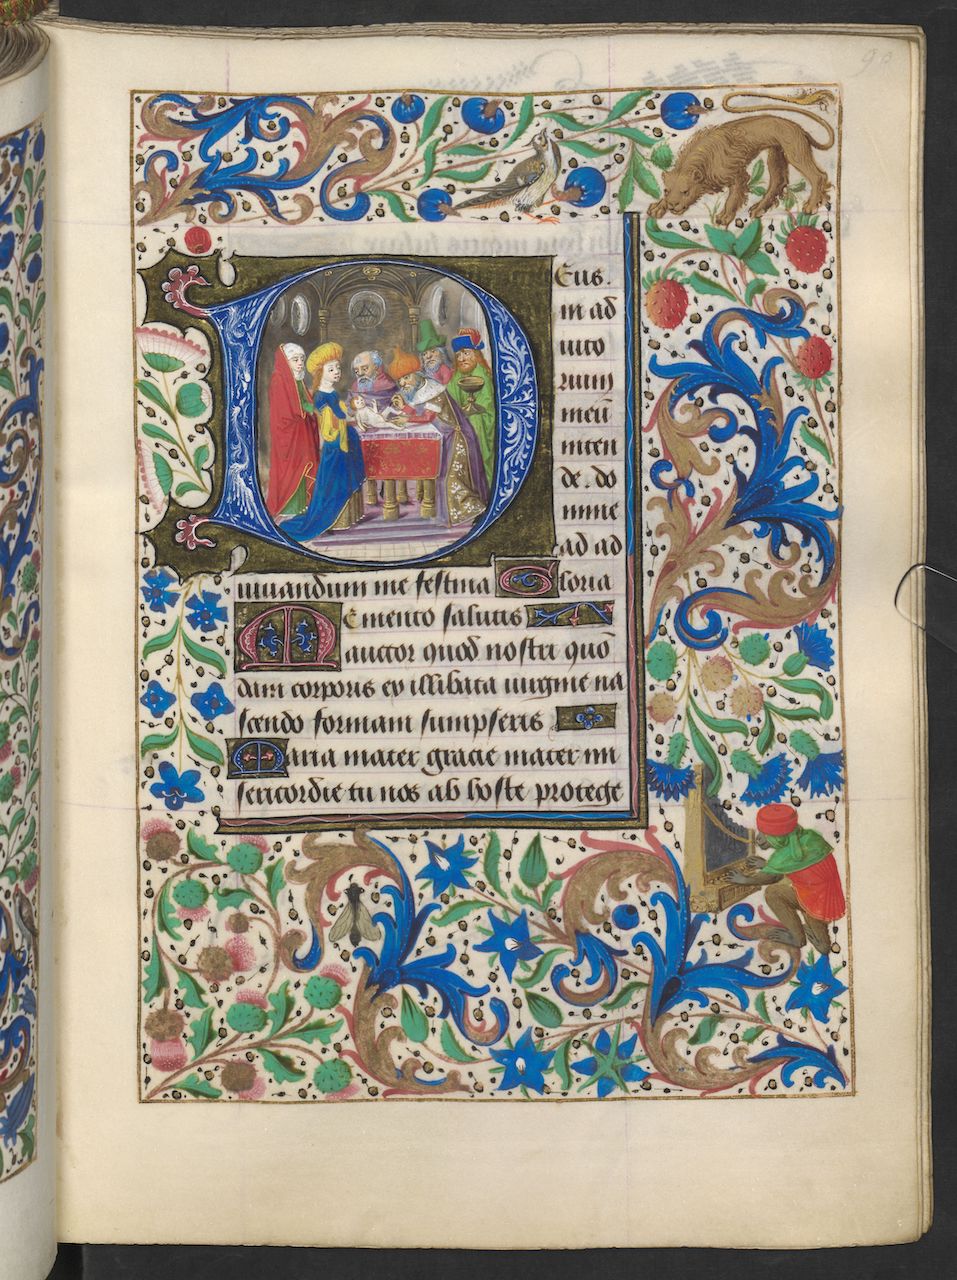 90
DEus.
in ad
iuto
rium
meū
inten
de. do
mine
ad ad
iuuandum me festina Gloria
Memento salutis
auctor quod nostri quō
dam corporis ex illibata uirgine na
scendo formam sumpseris
Maria mater gracie mater mi
sericordie tu nos ab hoste protege